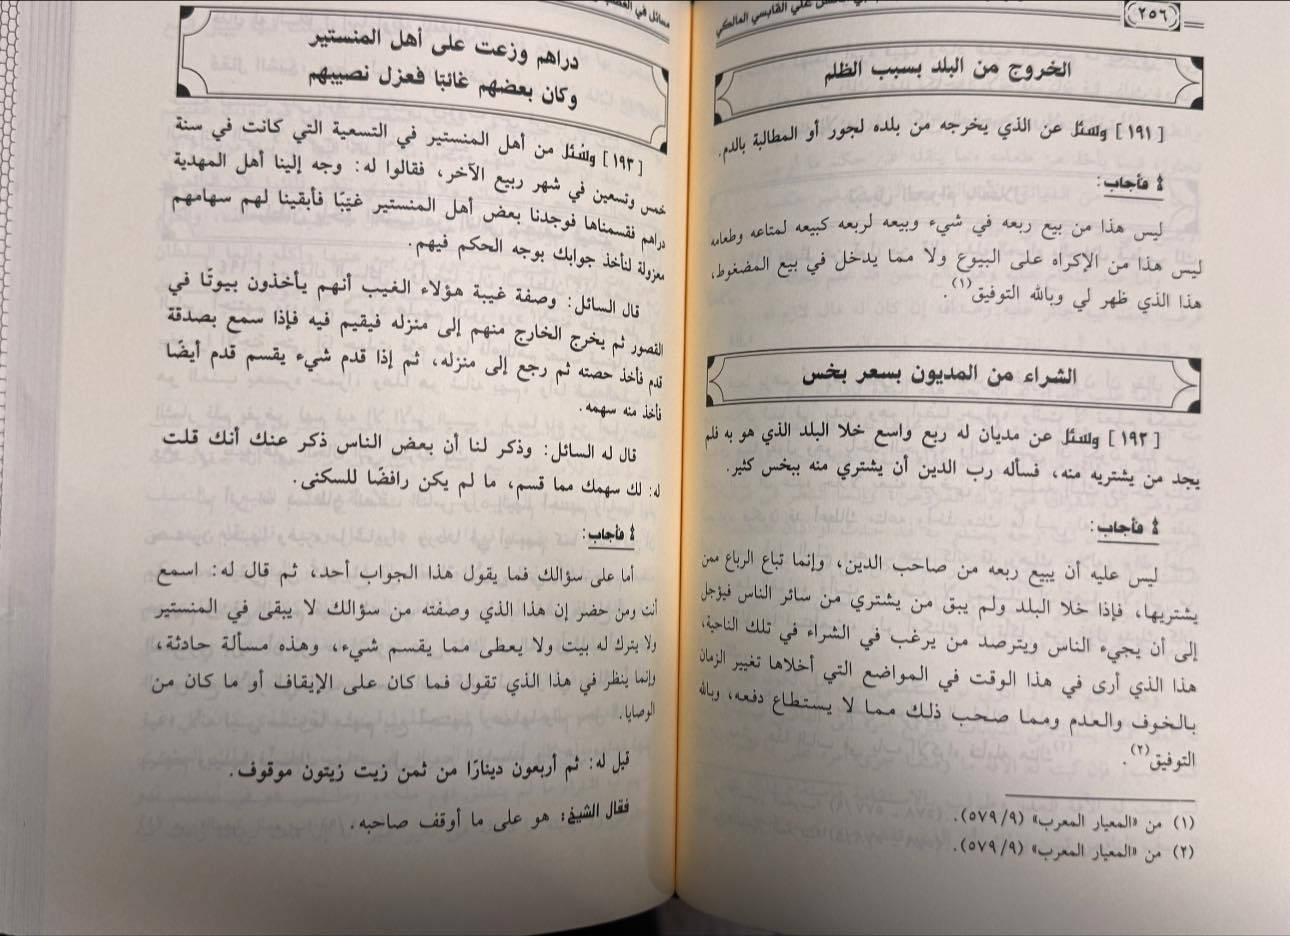 ٢٥٦
علي القابسي المالكي
الخروج من البلد بسبب الظلم
[١٩١] وسئل عن الذي يخرجه من بلده لجور أو المطالبة بالدم.
فأجاب:
ليس هذا من بيع ربعه في شيء وبيعه لربعه كبيعه لمتاعه وطعامه
ليس هذا من الإكراه على البيوع ولا مما يدخل في بيع المضغوط،
هذا الذي ظهر لي وبالله التوفيق(١).
الشراء من المديون بسعر بخس
[١٩٢] وسئل عن مديان له ربع واسع خلا البلد الذي هو به فلم
يجد من يشتريه منه، فسأله رب الدين أن يشتري منه ببخس كثير.
فأجاب:
ليس عليه أن يبيع ربعه من صاحب الدين، وإنما تباع الرباع ممن
يشتريها، فإذا خلا البلد ولم يبق من يشتري من سائر الناس فيؤجل
إلى أن يجيء الناس ويترصد من يرغب في الشراء في تلك الناحية،
هذا الذي أرى في هذا الوقت في المواضع التي أخلاها تغيير الزمان
بالخوف والعدم ومما صحب ذلك مما لا يستطاع دفعه، وبالله
التوفيق(٢).
(١) من «المعيار المعرب» (٥٧٩/٩).
(٢) من «المعيار المعرب» (٥٧٩/٩).
مسائل في
دراهم وزعت على أهل المنستير
وكان بعضهم غائبًا فعزل نصيبهم
[١٩٣] وسُئل من أهل المنستير في التسعية التي كانت في سنة
خمس وتسعين في شهر ربيع الآخر، فقالوا له: وجه إلينا أهل المهدية
دراهم فقسمناها فوجدنا بعض أهل المنستير غيّبًا فأبقينا لهم سهامهم
معزولة لنأخذ جوابك بوجه الحكم فيهم.
قال السائل: وصفة غيبة هؤلاء الغيب أنهم يأخذون بيوتًا في
القصور ثم يخرج الخارج منهم إلى منزله فيقيم فيه فإذا سمع بصدقة
قدم فأخذ حصته ثم رجع إلى منزله، ثم إذا قدم شيء يقسم قدم أيضًا
فأخذ منه سهمه.
قال له السائل: وذكر لنا أن بعض الناس ذكر عنك أنك قلت
له: لك سهمك مما قسم، ما لم يكن رافضًا للسكنى.
فأجاب:
أما على سؤالك فما يقول هذا الجواب أحد، ثم قال له: اسمع
أنت ومن حضر إن هذا الذي وصفته من سؤالك لا يبقى في المنستير
ولا يترك له بيت ولا يعطى مما يقسم شيء، وهذه مسألة حادثة،
وإنما ينظر في هذا الذي تقول فما كان على الإيقاف أو ما كان من
الوصايا.
قيل له: ثم أربعون دينارًا من ثمن زيت زيتون موقوف.
فقال الشيخ: هو على ما أوقف صاحبه.